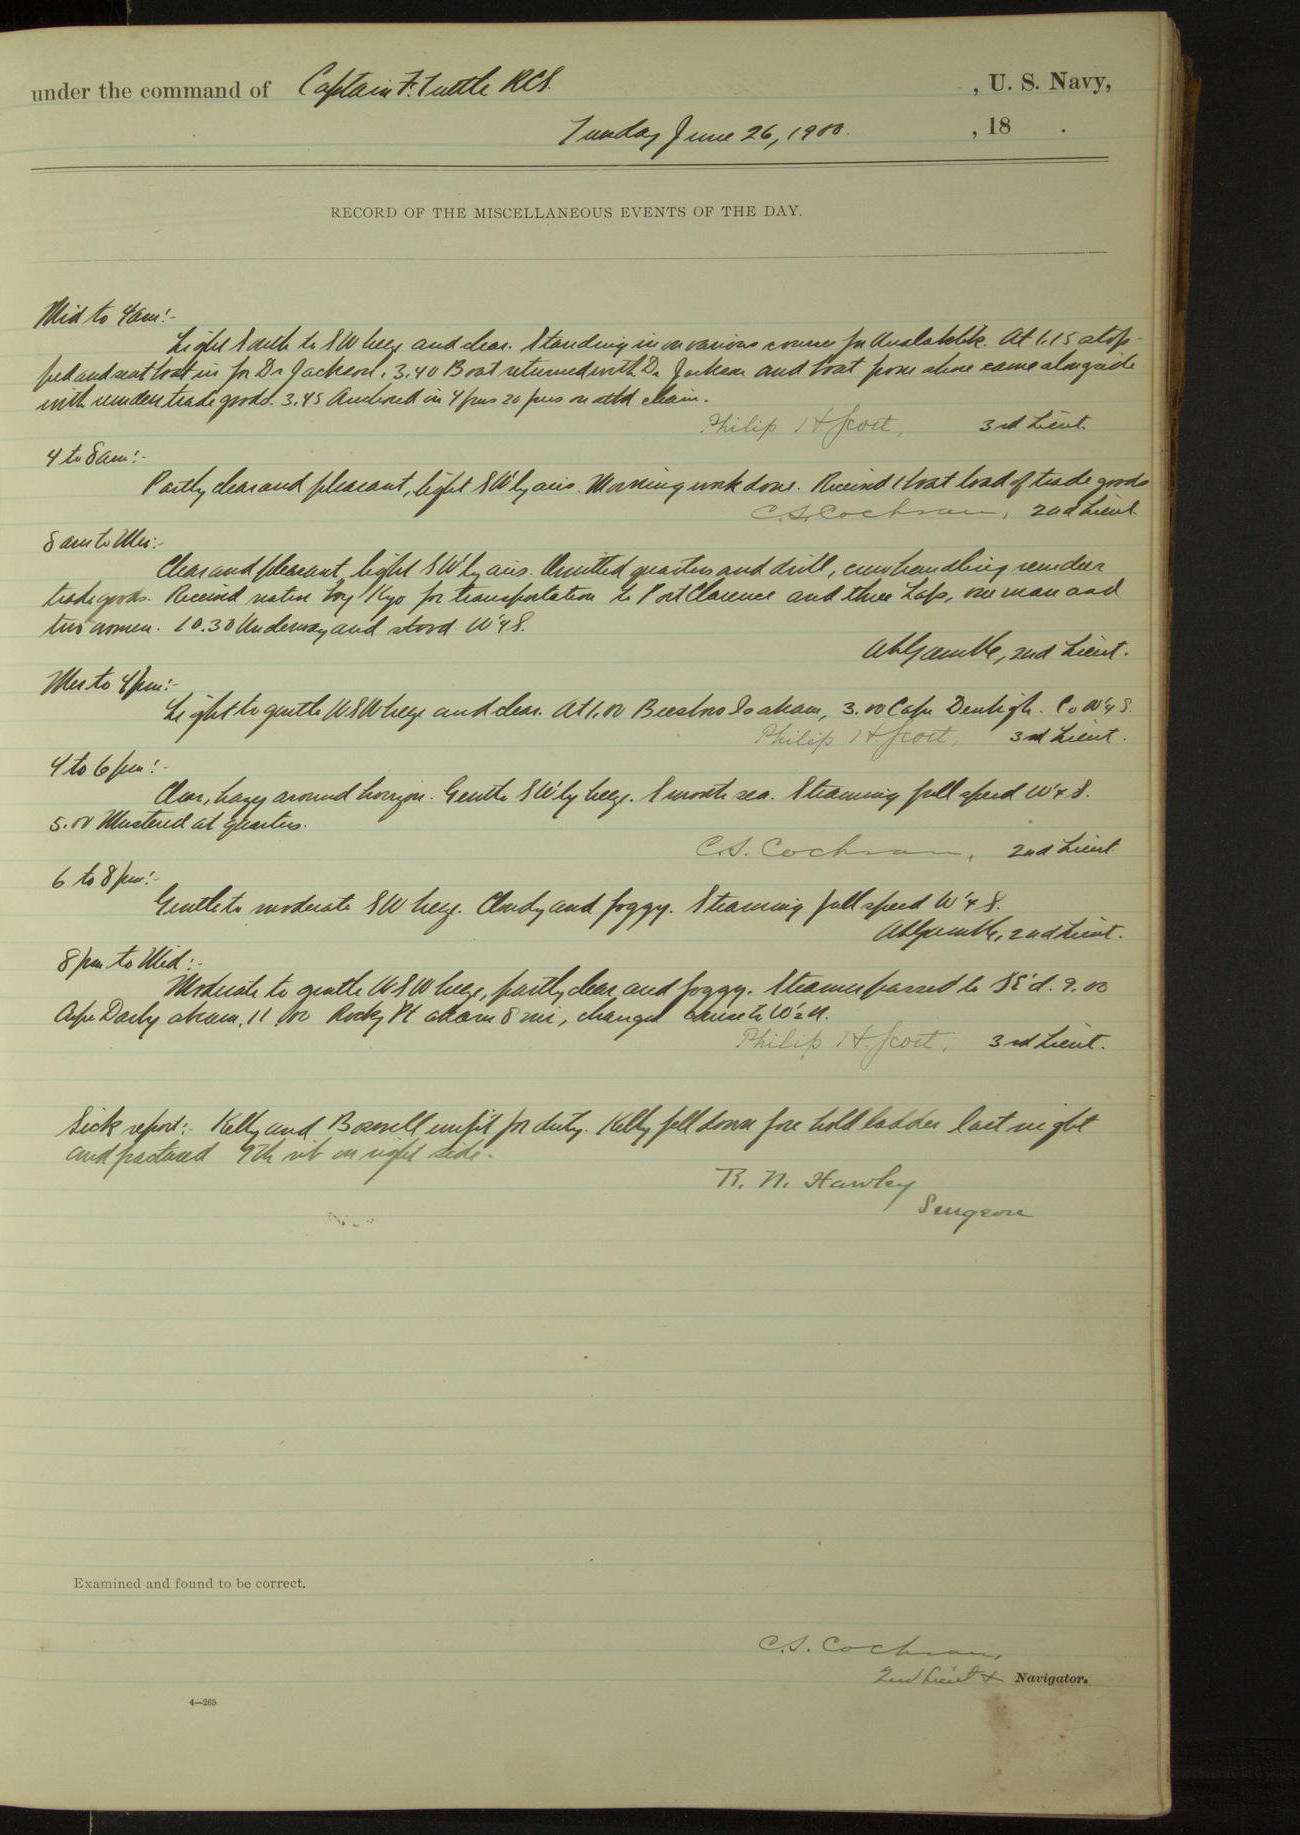 under the command of Captain F. Tuttle RCS. , U. S. Navy,
Tuesday June 26, 1900. , 18 .
RECORD OF THE MISCELLANEOUS EVENTS OF THE DAY.
Mid to 4am:-
Light South to SW breeze and clear. Standing in on various courses for Unalaklik. At 1.15 stop-
ped and sent boat in for Dr Jackson. 3.40 Boat returned with Dr Jackson and boat from shore came alongside
with reindeer trade goods. 3.45 Anchored in 4 fms 20 fms on stbd chain.
Philip H Scott, 3rd Lieut.
4 to 8am:-
Partly clear and pleasant, light SW'ly airs. Morning work done. Received 1 boat load of trade goods
C.S. Cochran, 2nd Lieut.
8am to Mer:-
Clear and pleasant, light SW'ly airs. Omitted quarters and drill, crew handling reindeer
trade goods. Received native boy for transportation to Port Clarence and three Laps, one man and
two women. 10.30 Underway and stood W'4S.
AhGamble, 2nd Lieut.
Mer to 4pm:-
Light to gentle WSW breeze and clear. At 1.00 Besboro Is abeam, 3.00 Cape Denbigh. Co W'4S.
Philip H Scott, 3rd Lieut.
4 to 6pm:-
Clear, hazy around horizon. Gentle SW'ly breeze. Smooth sea. Steaming full speed W'4S.
5.00 Mustered at quarters.
C.S. Cochran, 2nd Lieut.
6 to 8pm:-
Gentle to moderate SW breeze. Cloudy and foggy. Steaming full speed W'4S.
AhGamble, 2nd Lieut.
8pm to Mid:-
Moderate to gentle WSW breeze, partly clear and foggy. Steamer passed to SE'd. 9.00
Cape Darby abeam, 11.00 Rocky Pt abeam 8 mi, changed course to W'2N.
Philip H. Scott, 3rd Lieut.
Sick report:- Kelly and Boswell unfit for duty. Kelly fell down fore hold ladder last night
and fractured 9th rib on right side.
R. N. Hawley
Surgeon
Examined and found to be correct.
C.S. Cochran,
2nd Lieut & Navigator.
4—265